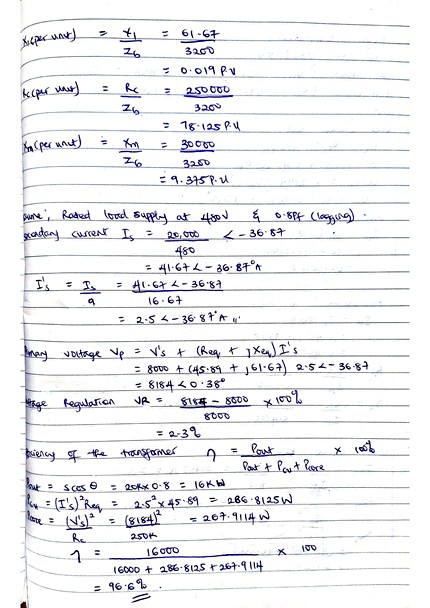 X₁(per unit) = X₁ / Z6 = 61.67 / 3200
= 0.019 P.U
Rc(per unit) = Rc / Z6 = 250000 / 3200
= 78.125 P.U
Xm(per unit) = Xm / Z6 = 30000 / 3200
= 9.375 P.U
Rated load supply at 480V & 0.8Pf (lagging).
current Is = 20,000 / 480 < -36.87
= 41.67 < -36.87°A
I's = Is / a = 41.67 < -36.87 / 16.67
= 2.5 < -36.87°A
voltage Vp = V's + (Req + jXeq) I's
= 8000 + (45.89 + j61.67) 2.5 < -36.87
= 8184 < 0.38°
Regulation VR = 8184 - 8000 / 8000 × 100%
= 2.3%
of the transformer η = Pout / Pout + Pcu + Pcore × 100%
Pout = scosθ = 20K×0.8 = 16KW
Pcu = (I's)² Req = 2.5² × 45.89 = 286.8125W
Pcore = (V's)² / Rc = (8184)² / 250K = 267.9114W
η = 16000 / 16000 + 286.8125 + 267.9114 × 100
= 96.6%